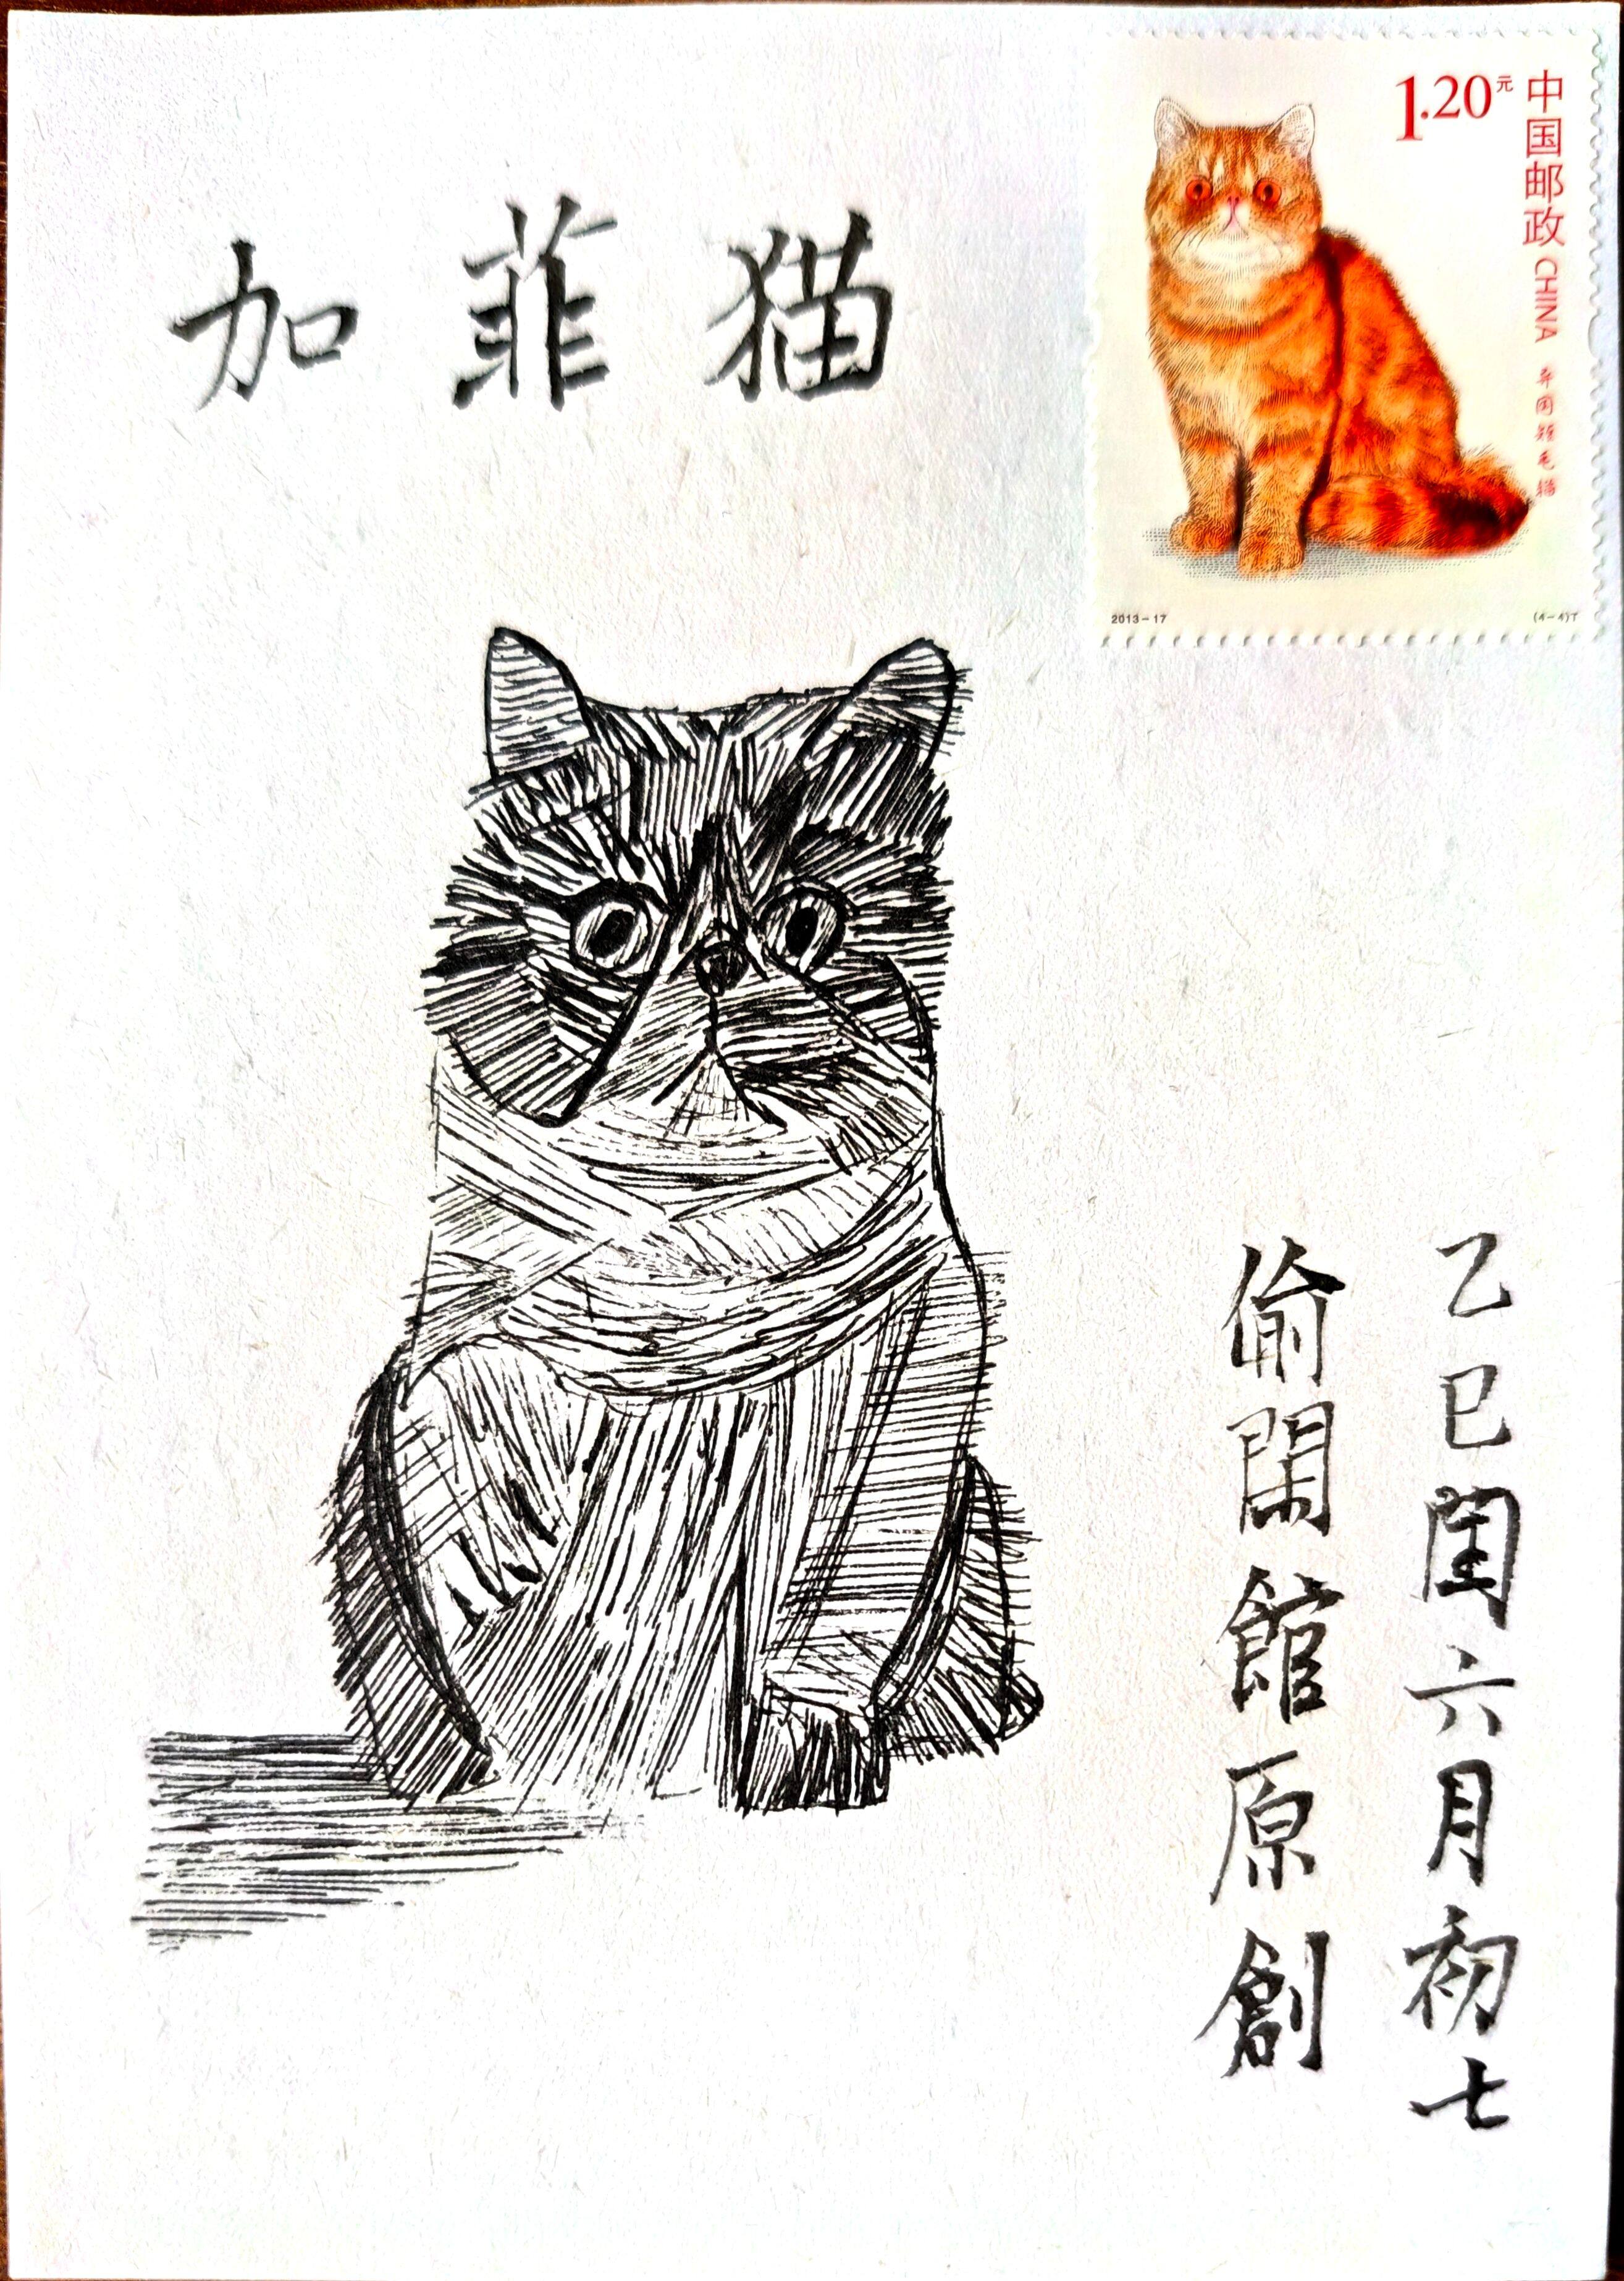 加菲猫
1.20元
中国邮政 CHINA 异国短毛猫
2013-17
(4-4)T
乙巳閏六月初七
偷閑館原創